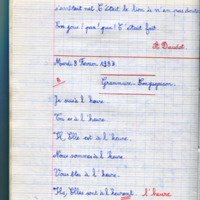 s'arrêtait net. C'était le lion à n'en pas douter
Eon feu ! pan ! pan ! C'était fait
A. Daudet.
Mardi 8 Février 1977
Grammaire - Conjugaison
Je suis à l'heure
Tu es à l'heure
Il, Elle est à l'heure
Nous sommes à l'heure
Vous êtes à l'heure
Ils, Elles sont à l'heure l'heure